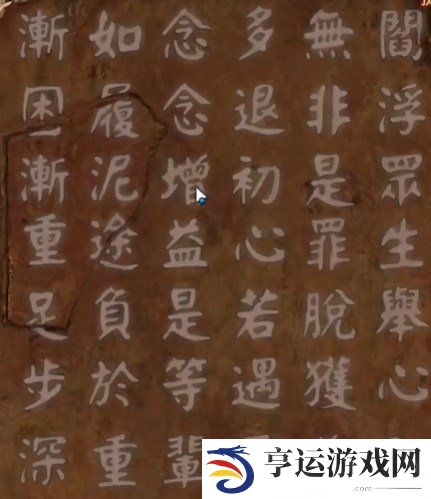 閻浮眾生舉心
無非是罪脫獲
多退初心若遇
念念增益是等輩
如履泥途負於重
漸困漸重足步深
亨运游戏网
.com